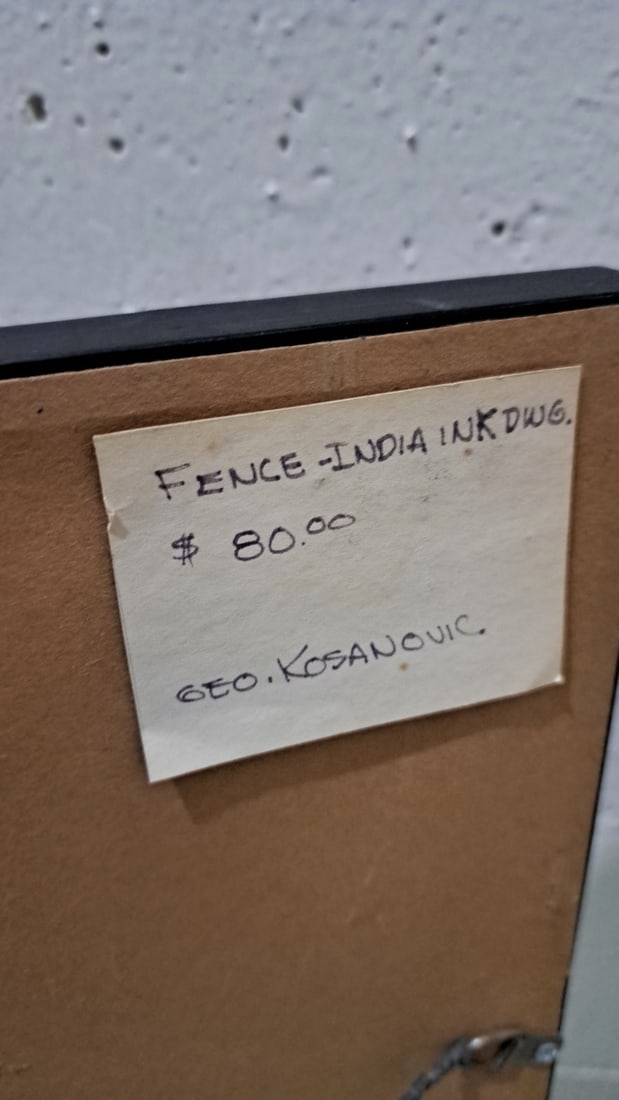 FENCE - INDIA INK DWG.
$ 80.00
GEO. KOSANOVIC